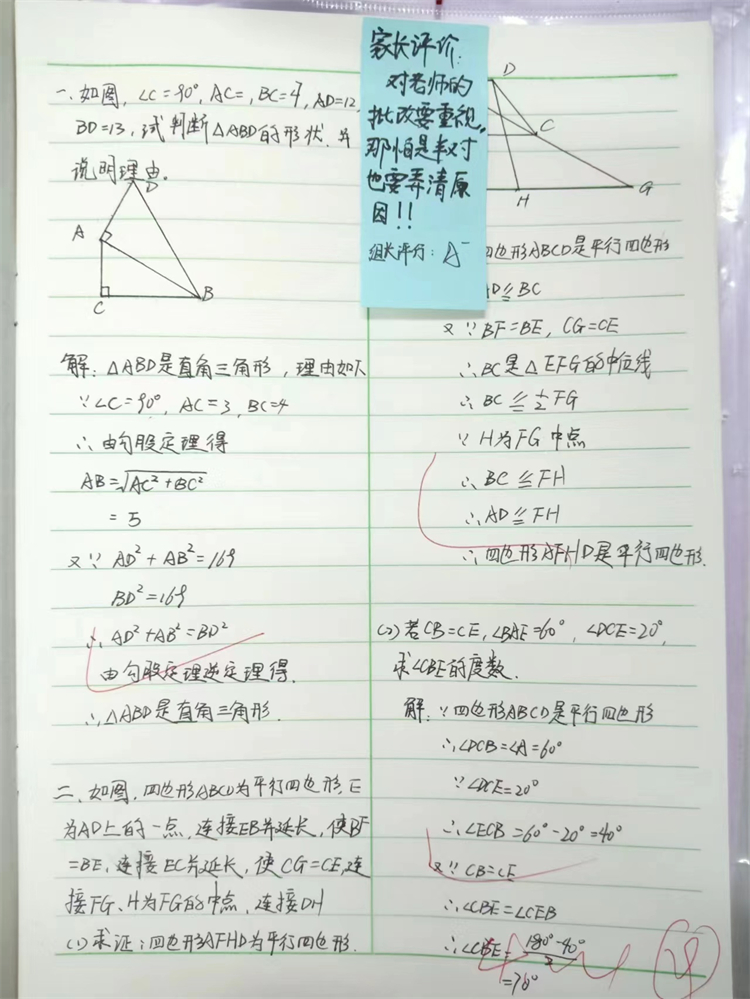 一、如图, ∠C=90°, AC=, BC=4, AD=12,
BD=13, 试判断△ABD的形状. 并
说明理由.
D
A
C
B
解: △ABD是直角三角形, 理由如下
∵∠C=90°, AC=3, BC=4
∴由勾股定理得
AB=√AC²+BC²
=5
又∵ AD²+AB²=169
BD²=169
∴ AD²+AB²=BD²
由勾股定理逆定理得.
∴△ABD是直角三角形.
二、如图, 四边形ABCD为平行四边形, E
为AD上的一点, 连接EB并延长, 使BF
=BE, 连接EC并延长, 使CG=CE, 连
接FG、H为FG的中点, 连接DH
(1) 求证: 四边形AFHD为平行四边形.
家长评价:
对老师的
批改要重视,
那怕是半对
也要弄清原
因!!
组长评行: A⁻
D
C
H
G
四边形ABCD是平行四边形
AD≦BC
又∵BF=BE, CG=CE
∴BC是△EFG的中位线
∴BC≦½FG
∵H为FG中点
∴BC≦FH
∴AD≦FH
∴四边形AFHD是平行四边形.
(2) 若CB=CE, ∠BAE=60°, ∠DCE=20°,
求∠CBE的度数.
解: ∵四边形ABCD是平行四边形
∴∠DCB=∠A=60°
∵∠DCE=20°
∴∠ECB=60°-20°=40°
又∵CB=CE
∴∠CBE=∠CEB
∴∠CBE=180°-40°/2
=70°